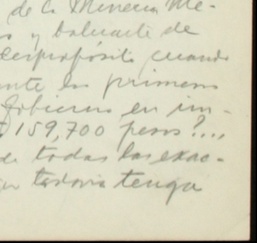 de la Minería Me-
s y baluarte de
despropósito cuando
ante los primeros
Gobierno en un-
159,700 pesos?...
de todas las exac-
todavía tenga